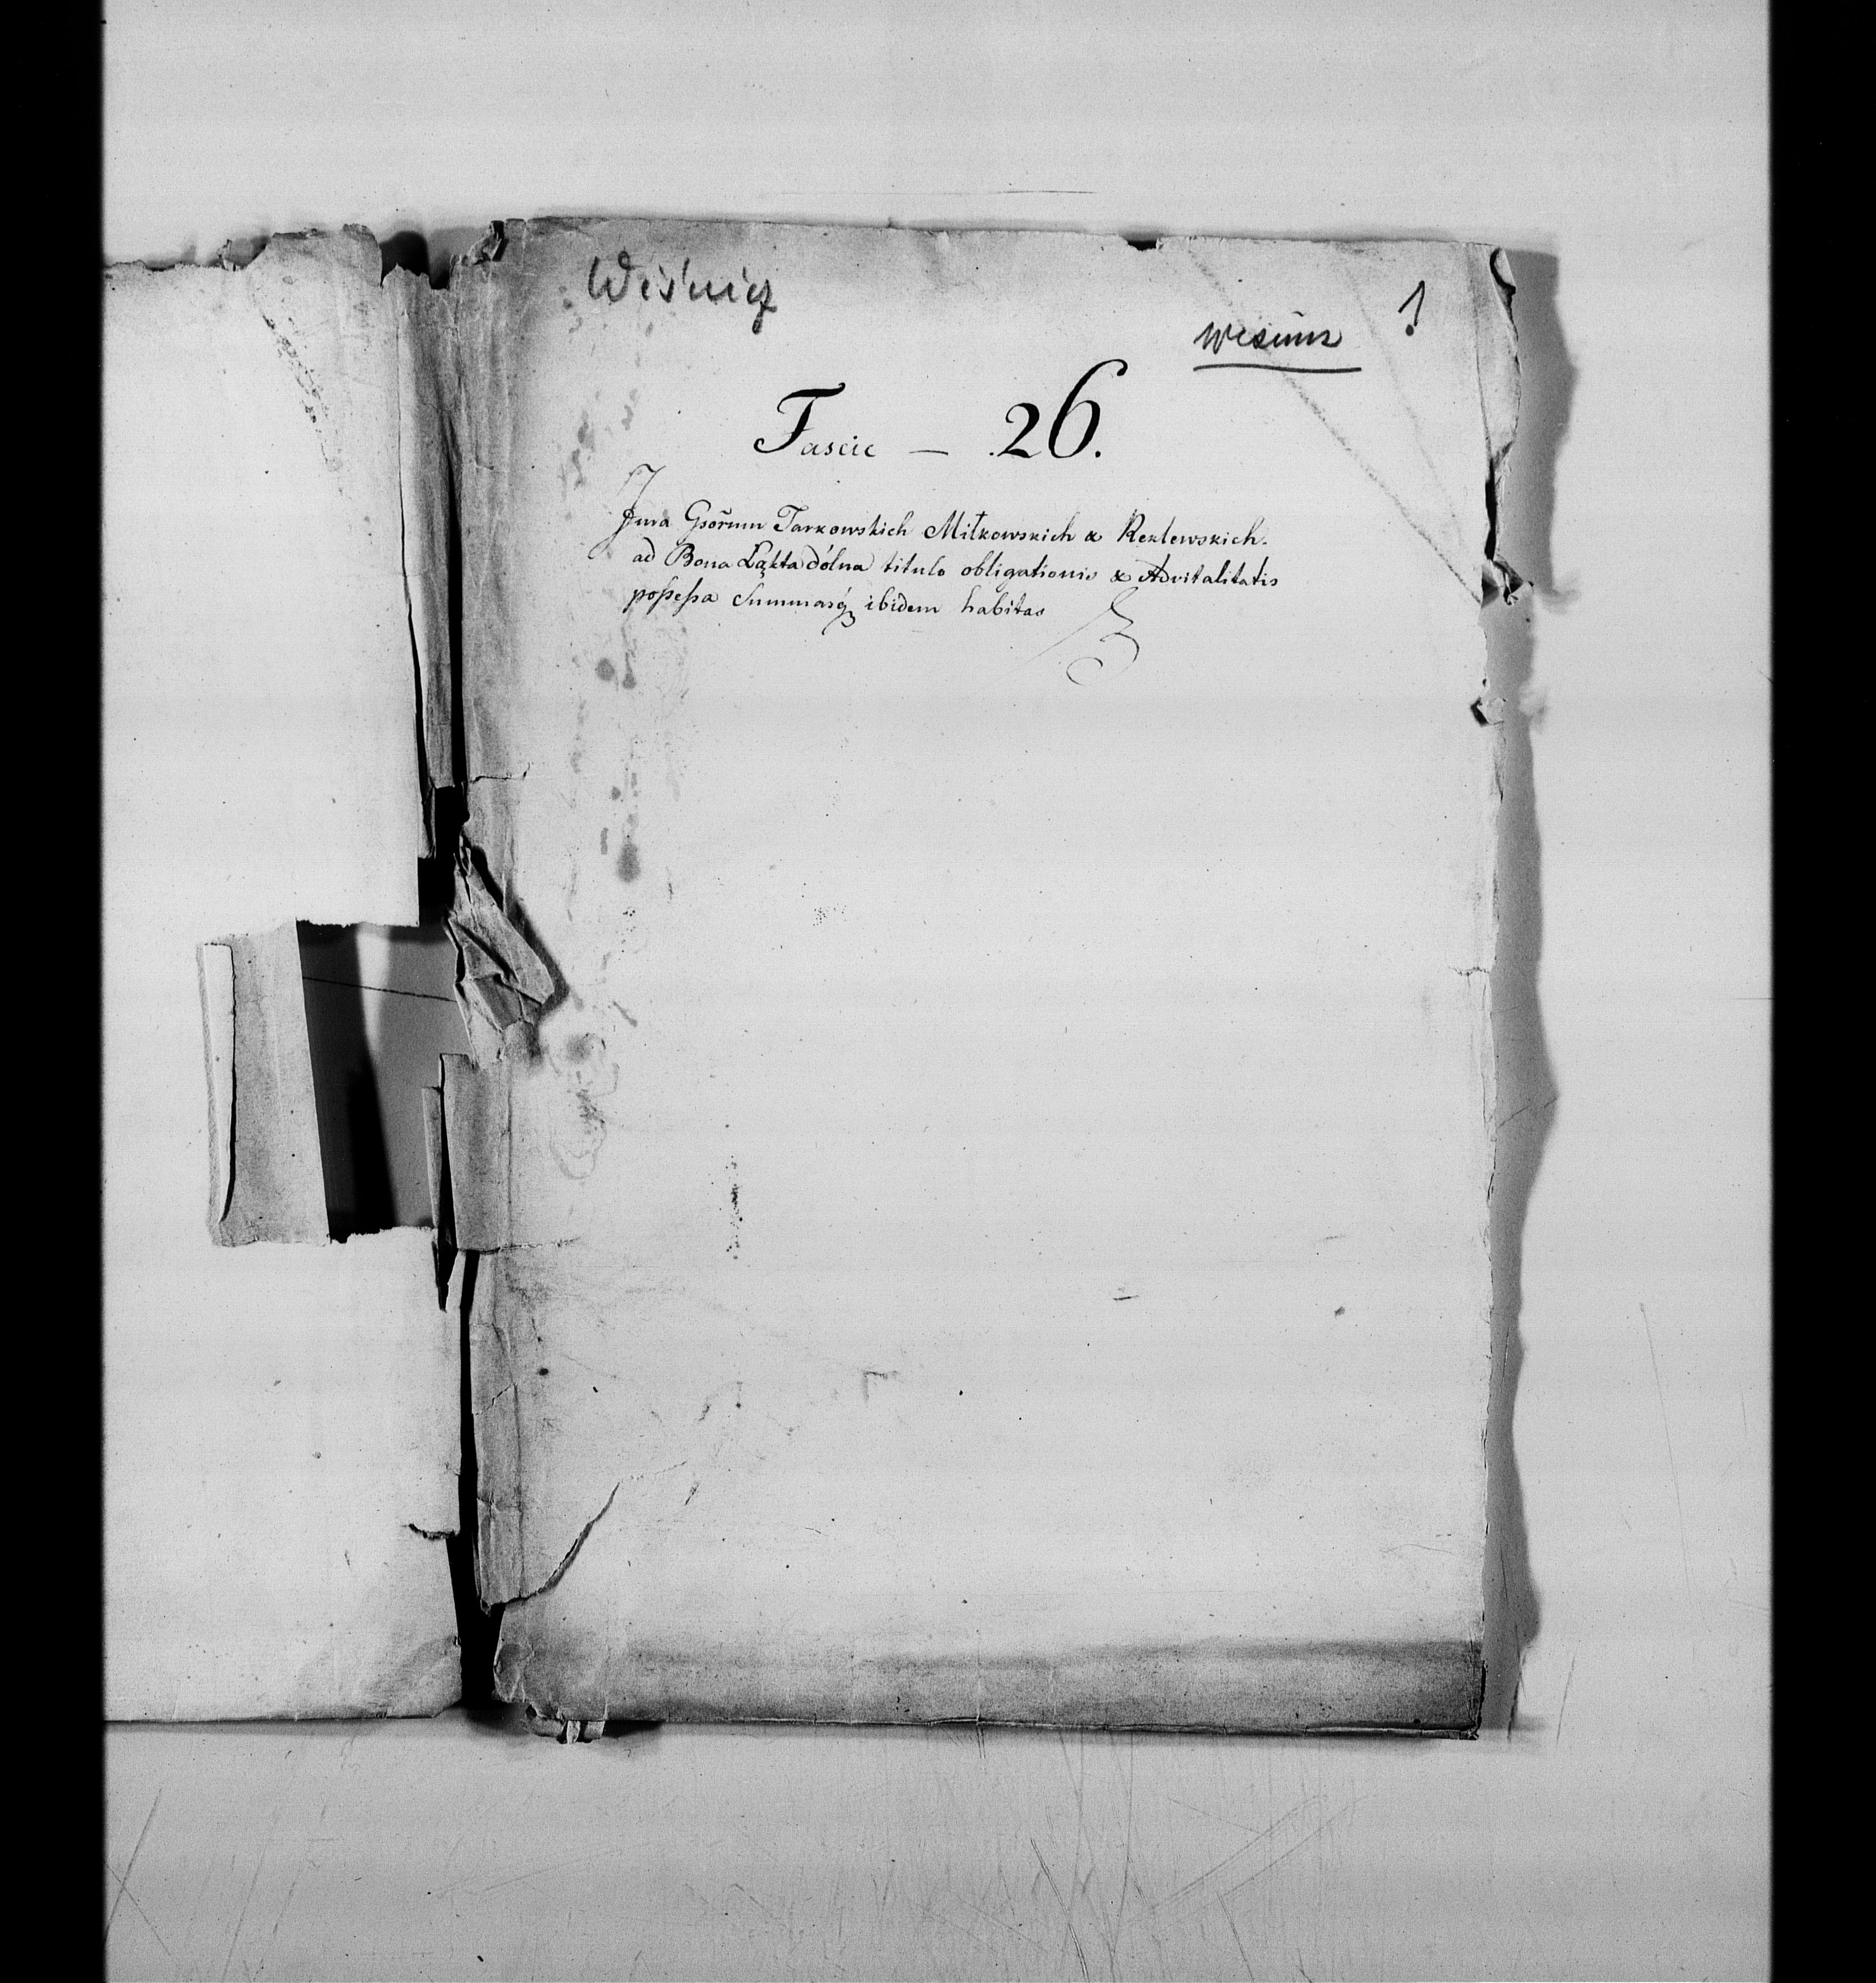 Wiśnicz
!
Fascic — 26.
Jura Gsorum Tarkowskich Miłkowskich & Rexlewskich.
ad Bona Łąkta dólna titulo obligationis & Advitalitatis
possessa Summasq̃ ibidem habitas